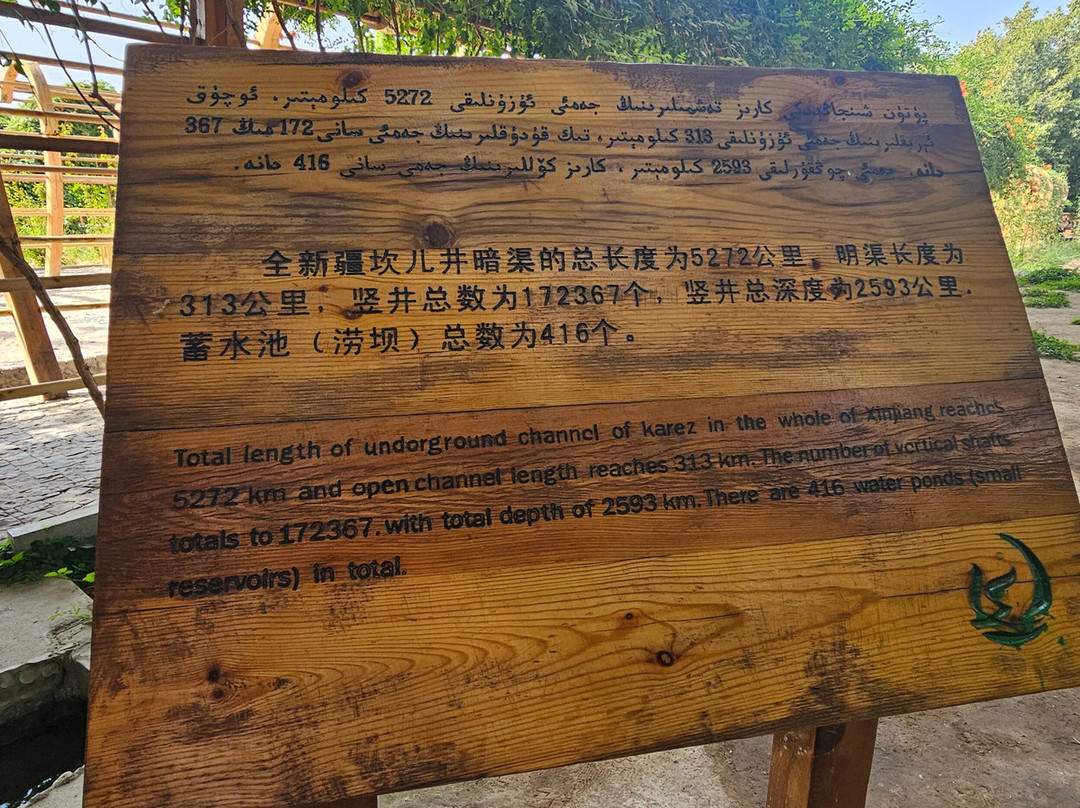 پۈتۈن شىنجاڭدىكى كارىز قەشمىلىرىنىڭ جەمئى ئۇزۇنلىقى 5272 كىلومېتىر، ئوچۇق
ئېرىقلىرىنىڭ جەمئى ئۇزۇنلىقى 313 كىلومېتىر، تىك قۇدۇقلىرىنىڭ جەمئى سانى 172 مىڭ 367
دانە. جەمئى چوڭقۇرلىقى 2593 كىلومېتىر، كارىز كۆللىرىنىڭ جەمى سانى 416 دانە.
全新疆坎儿井暗渠的总长度为5272公里，明渠长度为
313公里，竖井总数为172367个，竖井总深度为2593公里．
蓄水池（涝坝）总数为416个。
Total length of undorground channcl of karez in the whole of Xinjiang reachcs
5272 km and open channel length reaches 313 km. The number of vcrtical shafts
totals to 172367. with total depth of 2593 km. There are 416 water ponds (small
reservoirs) in total.